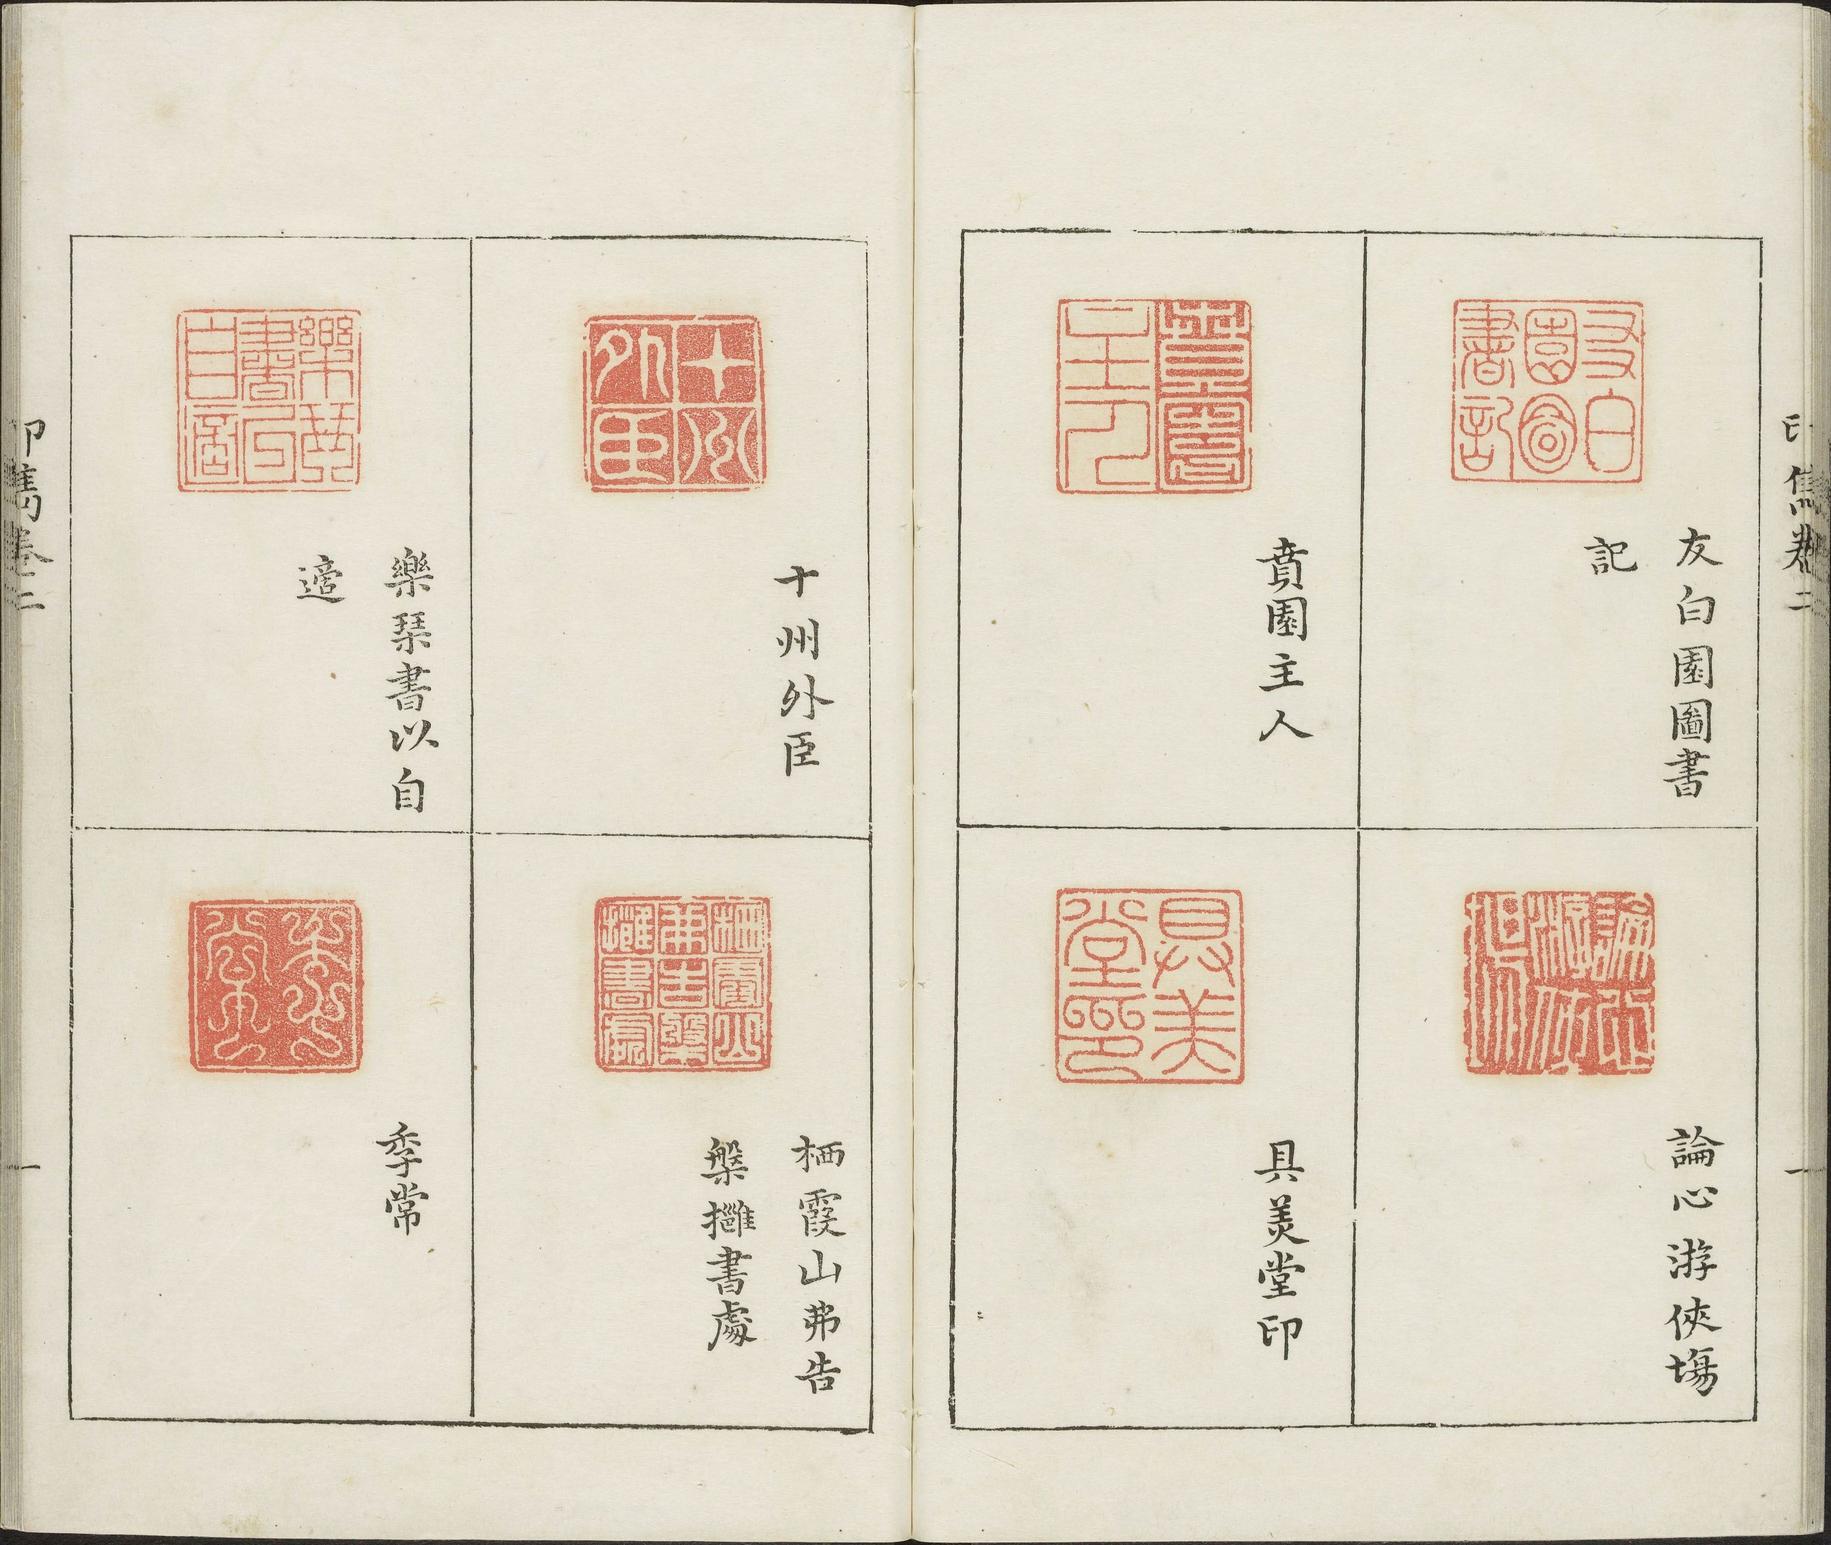 印雋卷二
一
友白園圖書
記
論心游俠場
賁園主人
具美堂印
十州外臣
栖霞山弗告
槃擁書處
樂琴書以自
適
季常
印雋卷二
一